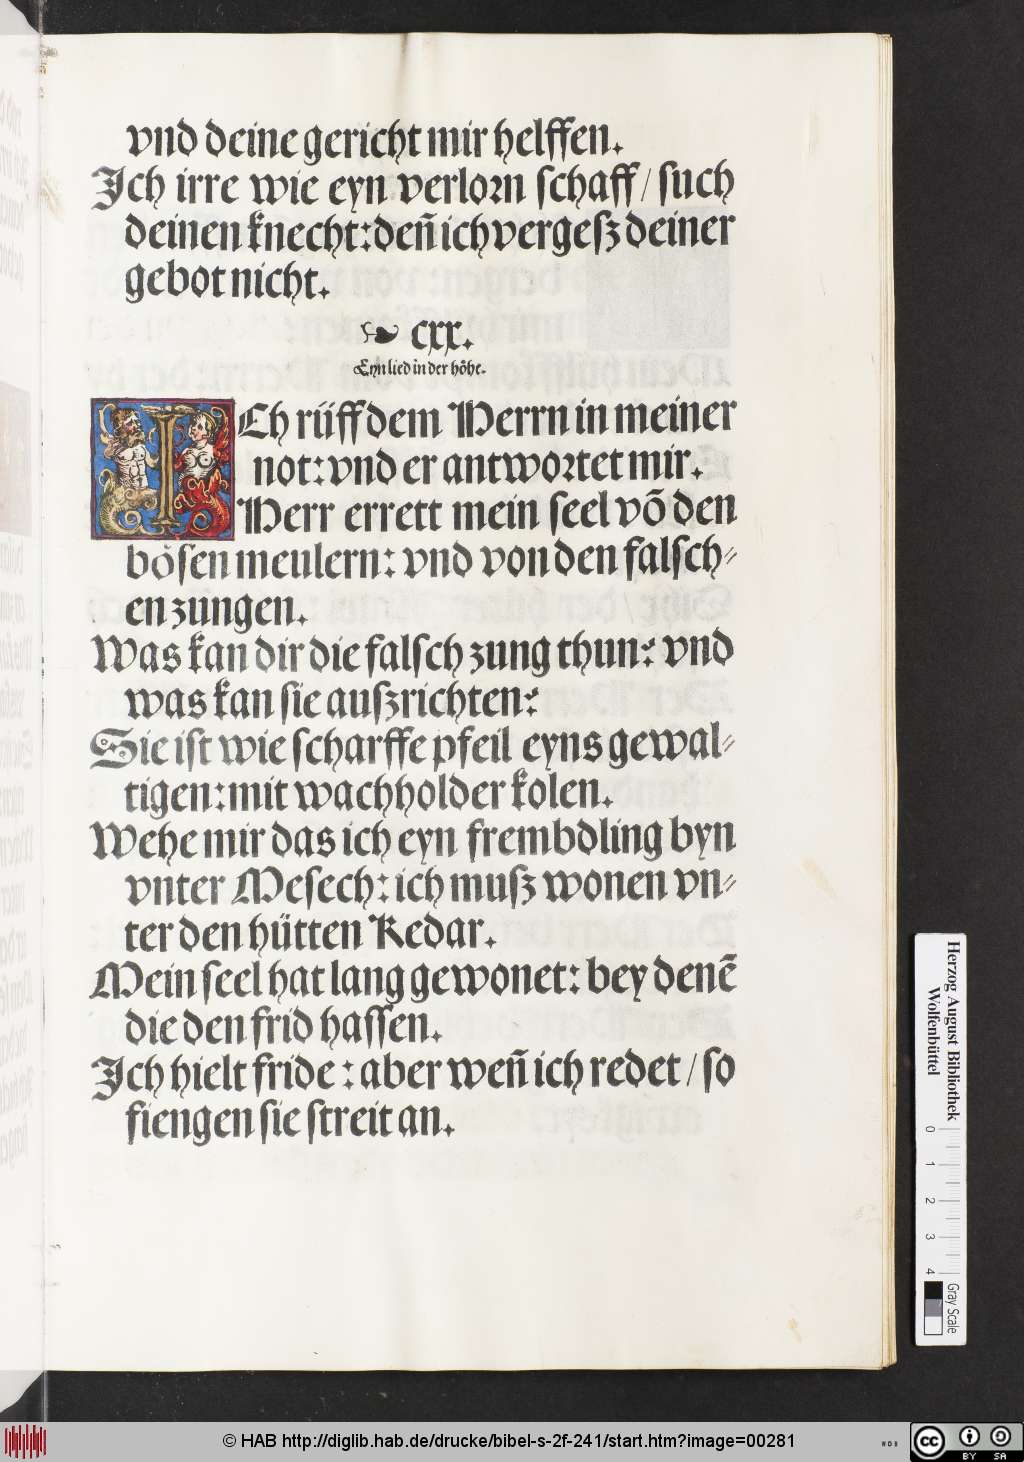 vnd deine gericht mir helffen.
Ich irre wie eyn verlorn schaff / such
deinen knecht: deñ ich vergesz deiner
gebot nicht.
☙ cxx.
Eyn lied in der höhe.
ICh rüff dem Herrn in meiner
not: vnd er antwortet mir.
Herr errett mein seel võ den
bösen meulern: vnd von den falsch⸗
en zungen.
Was kan dir die falsch zung thun? vnd
was kan sie auszrichten?
Sie ist wie scharffe pfeil eyns gewal⸗
tigen: mit wachholder kolen.
Wehe mir das ich eyn frembdling byn
vnter Mesech: ich musz wonen vn⸗
ter den hütten Kedar.
Mein seel hat lang gewonet: bey denẽ
die den frid hassen.
Ich hielt fride: aber weñ ich redet / so
fiengen sie streit an.
Herzog August Bibliothek
Wolfenbüttel
0 1 2 3 4
Gray Scale
© HAB http://diglib.hab.de/drucke/bibel-s-2f-241/start.htm?image=00281
WDB
cc BY SA